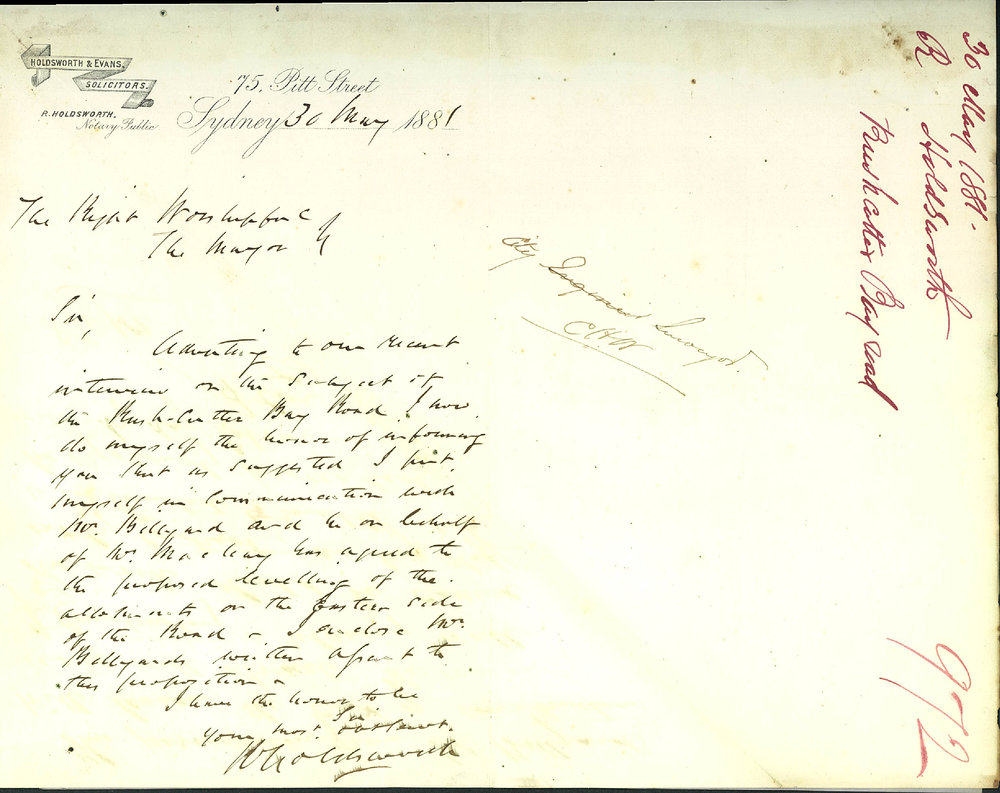 HOLDSWORTH & EVANS,
SOLICITORS.
R. HOLDSWORTH.
Notary Public
75, Pitt Street
Sydney 30 May 1881
The Right Worshipful
The Mayor
Sir,
Adverting to our recent
interview on the subject of
the Rush-Cutter Bay Road I now
do myself the honor of informing
you that as suggested I put
myself in communication with
Mr. Billyard and he on behalf
of Mr. Macleay has agreed to
the proposed levelling of the
allotments on the Eastern side
of the Road - I enclose Mr.
Billyards written assent to
this proposition -
I have the honor to be
Sir
your most obedient.
R Holdsworth
City Engineer Surveyor.
30 May 1881.
R Holdsworth
Rushcutter Bay road
972